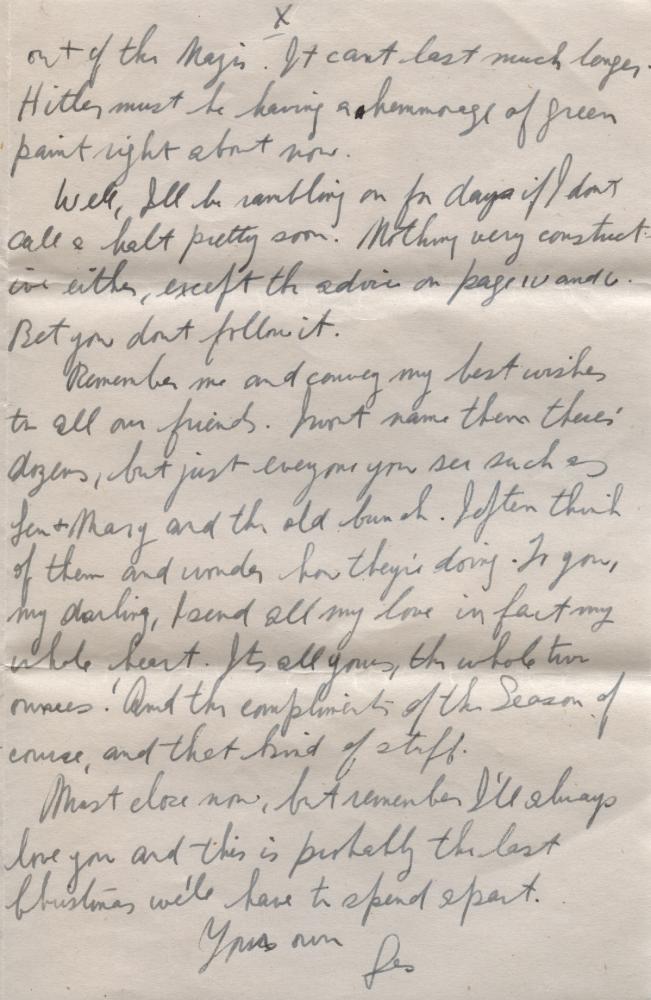 X
out of the Nazis. It cant last much longer.
Hitler must be having a hemmorage of green
paint right about now.
Well, I'll be rambling on for days if I dont
call a halt pretty soon. Nothing very construct-
ive either, except the advice on page IV and V.
Bet you dont follow it.
Remember me and convey my best wishes
to all our friends. I wont name them theres
dozens, but just everyone you see such as
Len & Mary and the old bunch. I often think
of them and wonder how they're doing. To you,
my darling, I send all my love in fact my
whole heart. Its all yours, the whole two
ounces! And the compliments of the Season of
course, and that kind of stuff.
Must close now, but remember I'll always
love you and this is probably the last
Christmas we'll have to spend apart.
Yours own
Les